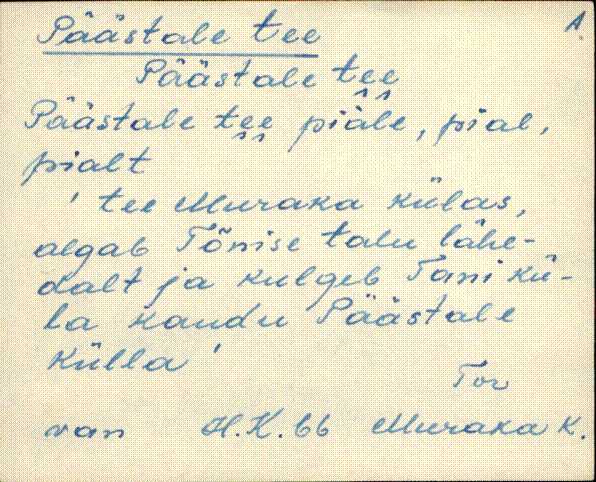 Päästale tee
1.
Päästale tee
Päästale tee piäle, pial,
pialt
' tee Muraka külas,
algab Tõnise talu lähe-
dalt ja kulgeb Tani kü-
la kaudu Päästale
külla '
Tor
van H.K.66 Muraka k.